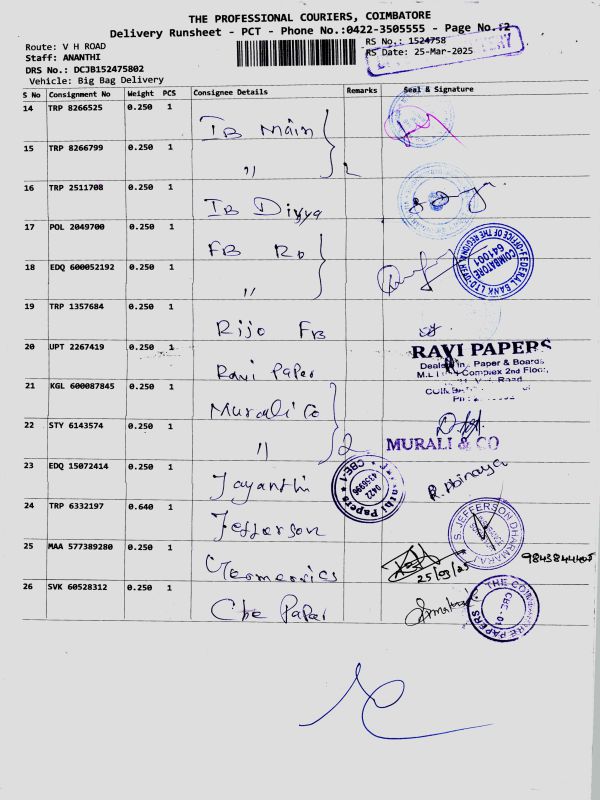 THE PROFESSIONAL COURIERS, COIMBATORE
Delivery Runsheet - PCT - Phone No.:0422-3505555 - Page No.:2
Route: V H ROAD
RS No.: 1524758
Staff: ANANTHI
RS Date: 25-Mar-2025
DRS No.: DCJB152475802
Vehicle: Big Bag Delivery
S No Consignment No Weight PCS Consignee Details Remarks Seal & Signature
14 TRP 8266525 0.250 1 IB Main
15 TRP 8266799 0.250 1 " 2
16 TRP 2511708 0.250 1 IB Divya
17 POL 2049700 0.250 1 FB RO
18 EDQ 600052192 0.250 1 "
FEDERAL BANK LTD COIMBATORE 641001
19 TRP 1357684 0.250 1 Rijo FB
20 UPT 2267419 0.250 1 Ravi Paper
RAVI PAPERS
Paper & Boards
Complex 2nd Floor,
Road
21 KGL 600087845 0.250 1 Murali Co
22 STY 6143574 0.250 1 " 2
MURALI & CO
23 EDQ 15072414 0.250 1 Jayanthi
Papers CBE-1 0422 R. Abinaya
24 TRP 6332197 0.640 1 Jefferson
S. JEFFERSON DHARMARAJ
25 MAA 577389280 0.250 1
25/03/25
26 SVK 60528312 0.250 1 Cbe Paper
PAPERS CBE - 01